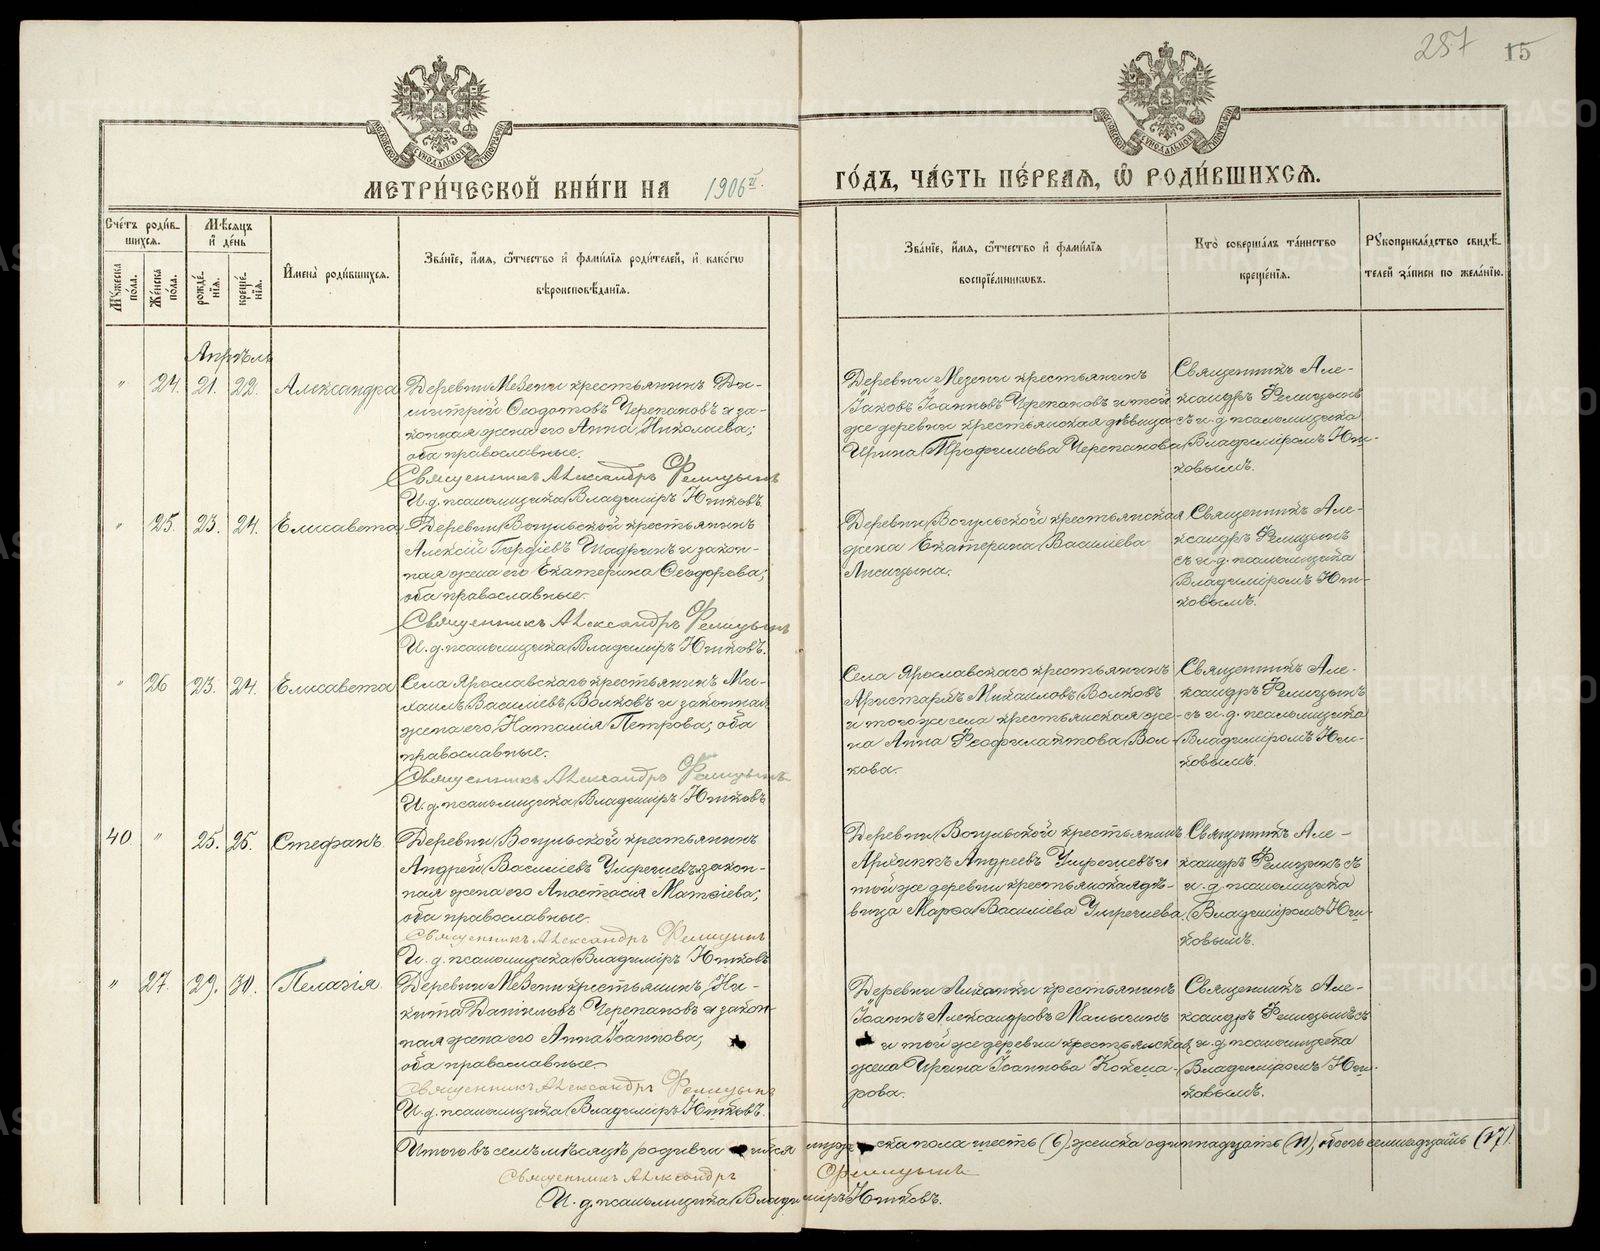 287 15
МЕТРИ́ЧЕСКОЙ КНИ́ГИ НА 1906й. ГО́ДЪ, ЧА́СТЬ ПЕ́РВАЯ, Ѡ҆ РОДИ́ВШИХСѦ.
Сче́тъ роди́в-
шихсѧ.
Мꙋ́жеска по́ла.
Же́нска по́ла.
Мѣ́сѧцъ
и҆ де́нь
рожде́-
нїѧ.
креще́-
нїѧ.
И҆мена̀ роди́вшихсѧ.
Зва́нїе, и҆́мѧ, ѻ҆́тчество и҆ фами́лїѧ роди́телей, и҆ како́гѡ
вѣроисповѣ́данїѧ.
Зва́нїе, и҆́мѧ, ѻ҆́тчество и҆ фами́лїѧ
воспрїе́мникѡвъ.
Кто̀ соверша́лъ та́инство
креще́нїѧ.
Рꙋкоприкла́дство свидѣ́-
телей за́писи по жела́нїю.
Апрѣль
" 24. 21. 22. Александра
Деревни Мезени крестьянинъ Ди-
митрій Ѳеодотовъ Черепановъ и за-
конная жена его Анна Николаева;
оба православные.
Священникъ Александръ Фелицынъ
И. д. псаломщика Владиміръ Ютковъ.
Деревни Мезени крестьянинъ
Іаковъ Іоанновъ Черепановъ и той
же деревни крестьянская дѣвица
Ирина Трофимова Черепанова
Священникъ Але-
ксандръ Фелицынъ
съ и. д. псаломщика
Владиміромъ Ют-
ковымъ.
" 25. 23. 24. Елисавета
Деревни Вогульской крестьянинъ
Алексій Гордіевъ Шадринъ и закон-
ная жена его Екатерина Ѳеодорова;
оба православные.
Священникъ Александръ Фелицынъ
И. д. псаломщика Владиміръ Ютковъ.
Деревни Вогульской крестьянская
жена Екатерина Василіева
Лисицына.
Священникъ Але-
ксандръ Фелицынъ
съ и. д. псаломщика
Владиміромъ Ют-
ковымъ.
" 26 23. 24. Елисавета
Села Ярославскаго крестьянинъ Ми-
хаилъ Василіевъ Волковъ и законная
жена его Наталія Петрова; оба
православные.
Священникъ Александръ Фелицынъ
И. д. псаломщика Владиміръ Ютковъ
Села Ярославскаго крестьянинъ
Аристархъ Михаиловъ Волковъ
и того же села крестьянская же-
на Анна Феофилактова Вол-
кова.
Священникъ Але-
ксандръ Фелицынъ
съ и. д. псаломщика
Владиміромъ Ют-
ковымъ.
40 " 25. 26. Стефанъ
Деревни Вогульской крестьянинъ
Андрей Василіевъ и закон-
ная жена его Анастасія Матѳіева;
оба православные.
Священникъ Александръ Фелицынъ
И. д. псаломщика Владиміръ Ютковъ
Деревни Вогульской крестьянинъ
Андреевъ и
той же деревни крестьянская дѣ-
вица Марѳа Василіева
Священникъ Але-
ксандръ Фелицынъ съ
и. д. псаломщика
Владиміромъ Ют-
ковымъ.
" 27. 29. 30. Пелагія
Деревни Мезени крестьянинъ Ни-
кита Даніиловъ Черепановъ и закон-
ная жена его Анна Іоаннова;
оба православные.
Священникъ Александръ Фелицынъ
И. д. псаломщика Владиміръ Ютковъ.
Деревни крестьянинъ
Іоаннъ Александровъ Малыгинъ
и той же деревни крестьянская
жена Ирина Іоаннова Кокша-
рова.
Священникъ Але-
ксандръ Фелицынъ съ
и. д. псаломщика
Владиміромъ Ют-
ковымъ.
Итого въ семъ мѣсяцѣ родившихся мужеска пола шесть (6), женска одиннадцать (11), обоего семнадцать (17).
Священникъ Александръ Фелицынъ
И. д. псаломщика Владиміръ Ютковъ.